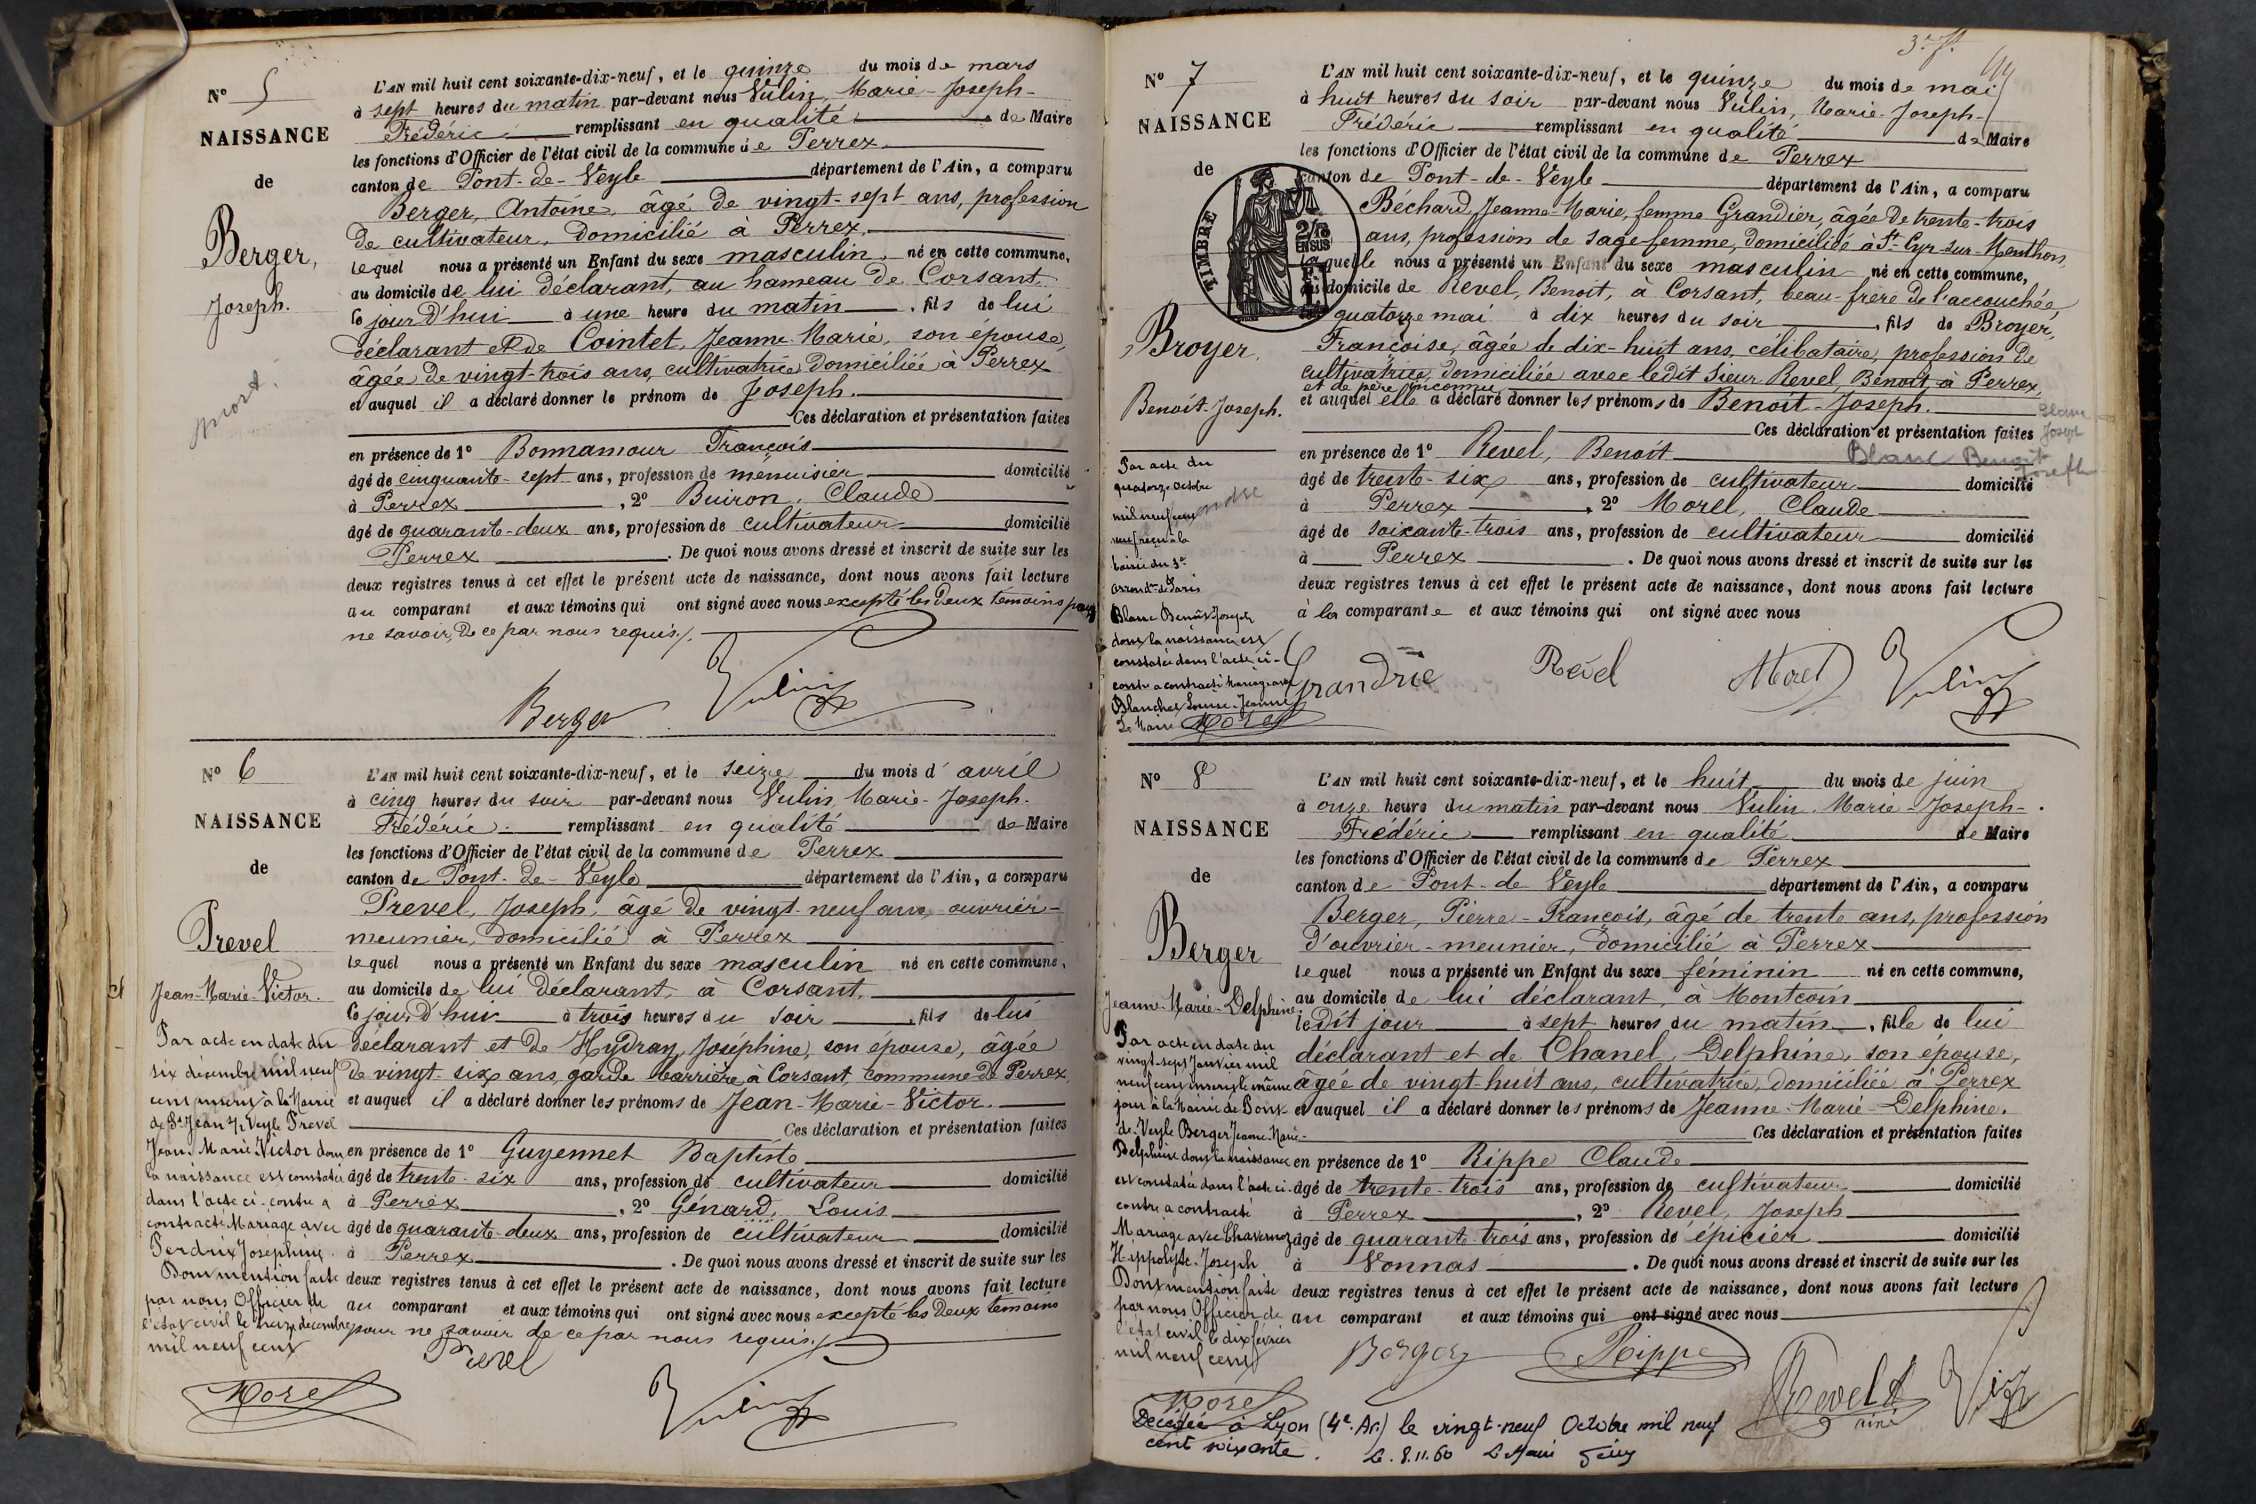 N° 5
NAISSANCE
de
Berger,
Joseph.
mort.
L'AN mil huit cent soixante-dix-neuf, et le quinze du mois de mars
à sept heures du matin par-devant nous Vulin, Marie-Joseph-
Frédéric remplissant en qualité de Maire
les fonctions d'Officier de l'état civil de la commune de Perrex
canton de Pont-de-Veyle département de l'Ain, a comparu
Berger, Antoine, âgé de vingt-sept ans, profession
de cultivateur, domicilié à Perrex,
lequel nous a présenté un Enfant du sexe masculin, né en cette commune,
au domicile de lui déclarant, au hameau de Corsant,
le jour d'hui à une heure du matin, fils de lui
déclarant et de Cointet, Jeanne-Marie, son épouse,
âgée de vingt-trois ans, cultivatrice, domiciliée à Perrex
et auquel il a déclaré donner le prénom de Joseph.
Ces déclaration et présentation faites
en présence de 1° Bonnamour François
âgé de cinquante-sept ans, profession de menuisier domicilié
à Perrex, 2° Buiron, Claude
âgé de quarante-deux ans, profession de cultivateur domicilié
Perrex. De quoi nous avons dressé et inscrit de suite sur les
deux registres tenus à cet effet le présent acte de naissance, dont nous avons fait lecture
au comparant et aux témoins qui ont signé avec nous excepté les deux témoins pour
ne savoir, de ce par nous requis./.
Berger Vulin
N° 6
NAISSANCE
de
Prevel
Jean-Marie-Victor.
Par acte en date du
six décembre mil neuf
cent à la Mairie
de St Jean s/ Veyle Prevel
Jean-Marie-Victor dont
la naissance est constatée
dans l'acte ci-contre a
contracté Mariage avec
Perdrix Joséphine.
Dont mention faite
par nous Officier de
l'état civil le décembre
mil neuf cent
Morel
L'AN mil huit cent soixante-dix-neuf, et le seize du mois d'avril
à cinq heures du soir par-devant nous Vulin, Marie-Joseph-
Frédéric remplissant en qualité de Maire
les fonctions d'Officier de l'état civil de la commune de Perrex
canton de Pont-de-Veyle département de l'Ain, a comparu
Prevel, Joseph, âgé de vingt-neuf ans, ouvrier-
meunier, domicilié à Perrex
lequel nous a présenté un Enfant du sexe masculin né en cette commune,
au domicile de lui déclarant, à Corsant,
le jour d'hui à trois heures du soir, fils de lui
déclarant et de Hydran, Joséphine, son épouse, âgée
de vingt-six ans, garde barrière à Corsant, commune de Perrex,
et auquel il a déclaré donner les prénoms de Jean-Marie-Victor.
Ces déclaration et présentation faites
en présence de 1° Guyennet Baptiste
âgé de trente-six ans, profession de cultivateur domicilié
à Perrex, 2° Génard, Louis
âgé de quarante-deux ans, profession de cultivateur domicilié
à Perrex. De quoi nous avons dressé et inscrit de suite sur les
deux registres tenus à cet effet le présent acte de naissance, dont nous avons fait lecture
au comparant et aux témoins qui ont signé avec nous excepté les deux témoins
pour ne savoir de ce par nous requis./.
Prevel Vulin
3e f.
N° 7
NAISSANCE
de
TIMBRE
2/10
EN SUS
Broyer,
Benoît-Joseph.
Par acte du
quatorze octobre
mil neuf cent
neuf reçu à la
Mairie du 3e
arrondt de Paris
Blanc Benoît Joseph
dont la naissance est
constatée dans l'acte ci-
contre a contracté mariage avec
Blanchet Louise-Jeanne
Le Maire Morel
L'AN mil huit cent soixante-dix-neuf, et le quinze du mois de mai
à huit heures du soir par-devant nous Vulin, Marie-Joseph-
Frédéric remplissant en qualité de Maire
les fonctions d'Officier de l'état civil de la commune de Perrex
canton de Pont-de-Veyle département de l'Ain, a comparu
Béchard, Jeanne-Marie, femme Grandier, âgée de trente-trois
ans, profession de sage-femme, domiciliée à St-Cyr-sur-Menthon,
laquelle nous a présenté un Enfant du sexe masculin, né en cette commune,
au domicile de Revel, Benoît, à Corsant, beau-frère de l'accouchée,
quatorze mai à dix heures du soir, fils de Broyer,
Françoise, âgée de dix-huit ans, célibataire, profession de
cultivatrice, domiciliée avec ledit sieur Revel, Benoît, à Perrex,
et de père inconnu
et auquel elle a déclaré donner les prénoms de Benoît-Joseph.
Ces déclaration et présentation faites
Blanc Benoit
Joseph
en présence de 1° Revel, Benoît
âgé de trente-six ans, profession de cultivateur domicilié
à Perrex, 2° Morel, Claude
âgé de soixante-trois ans, profession de cultivateur domicilié
à Perrex. De quoi nous avons dressé et inscrit de suite sur les
deux registres tenus à cet effet le présent acte de naissance, dont nous avons fait lecture
à la comparante et aux témoins qui ont signé avec nous
Grandrie Revel Morel Vulin
N° 8
NAISSANCE
de
Berger
Jeanne-Marie-Delphine
Par acte en date du
vingt-sept Janvier mil
neuf cent le même
jour à la Mairie de Pont-
de-Veyle Berger Jeanne-Marie-
Delphine dont la naissance
est constatée dans l'acte ci-
contre a contracté
Mariage avec
Hippolyte-Joseph
Dont mention faite
par nous Officier de
l'état civil le dix février
mil neuf cent
Morel
L'AN mil huit cent soixante-dix-neuf, et le huit du mois de juin
à onze heure du matin par-devant nous Vulin, Marie-Joseph-
Frédéric remplissant en qualité de Maire
les fonctions d'Officier de l'état civil de la commune de Perrex
canton de Pont-de-Veyle département de l'Ain, a comparu
Berger, Pierre-François, âgé de trente ans, profession
d'ouvrier-meunier, domicilié à Perrex
lequel nous a présenté un Enfant du sexe féminin né en cette commune,
au domicile de lui déclarant, à Montcoin
ledit jour à sept heures du matin, fille de lui
déclarant et de Chanel, Delphine, son épouse,
âgée de vingt-huit ans, cultivatrice, domiciliée à Perrex
et auquel il a déclaré donner les prénoms de Jeanne-Marie-Delphine.
Ces déclaration et présentation faites
en présence de 1° Rippe Claude
âgé de trente-trois ans, profession de cultivateur domicilié
à Perrex, 2° Revel, Joseph
âgé de quarante-trois ans, profession de épicier domicilié
à Vonnas. De quoi nous avons dressé et inscrit de suite sur les
deux registres tenus à cet effet le présent acte de naissance, dont nous avons fait lecture
au comparant et aux témoins qui ont signé avec nous
Berger Rippe Revel aîné Vulin
Décédée à Lyon (4e Ar.) le vingt-neuf Octobre mil neuf
cent soixante. Le 8.11.60 Le Maire